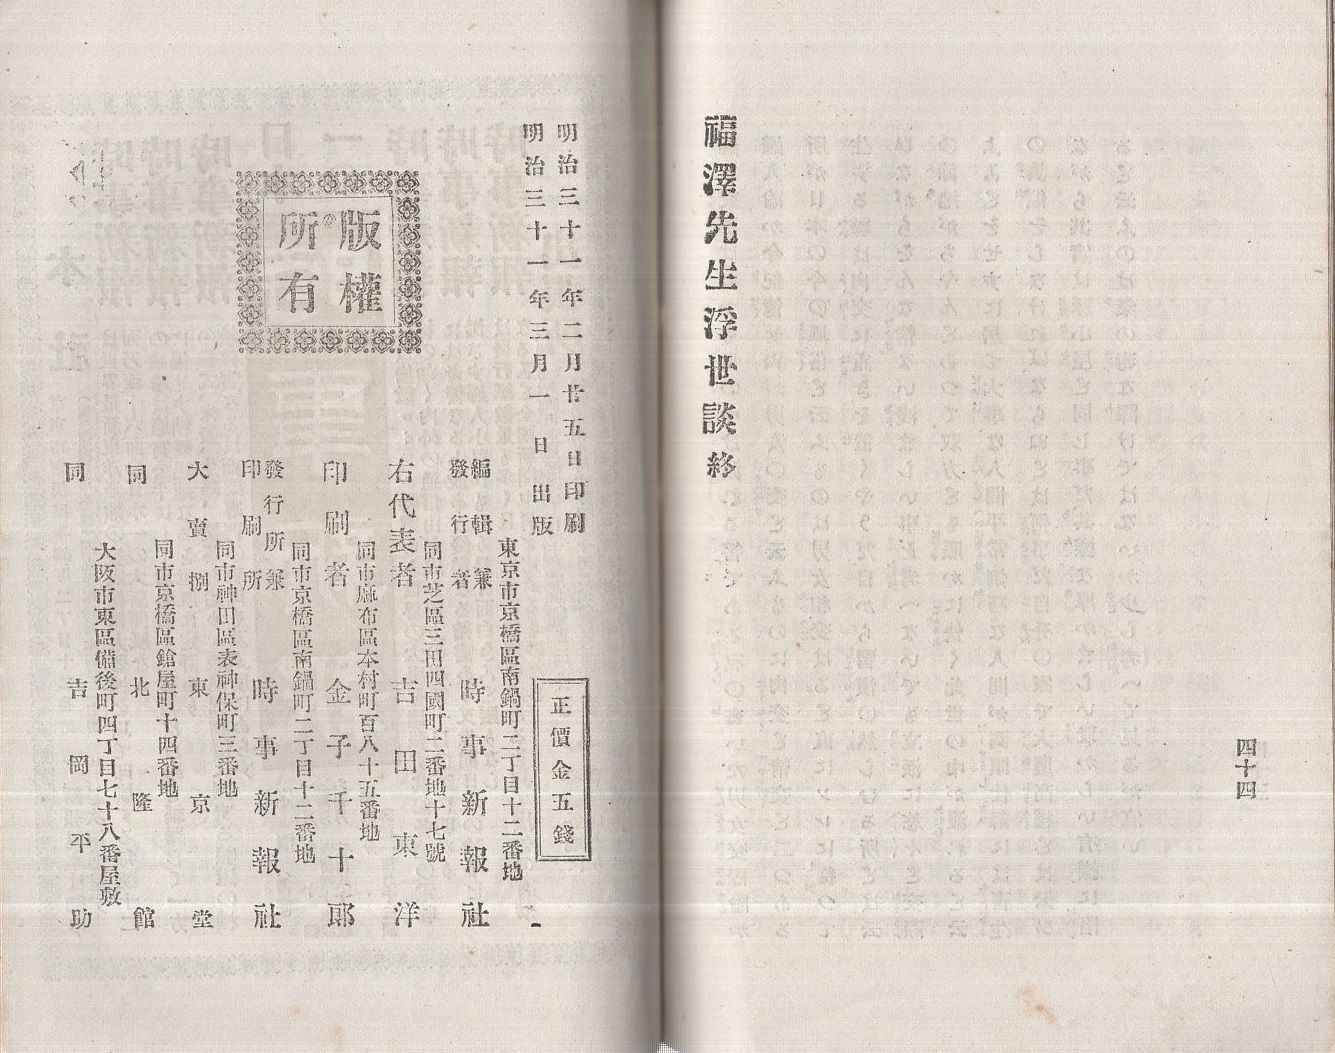 福澤先生浮世談終
四十四
明治三十一年二月廿五日印刷
明治三十一年三月一日出版
正價金五錢
版權
所有
東京市京橋區南鍋町二丁目十二番地
編輯兼
發行者
時事新報社
同市芝區三田四國町二番地十七號
右代表者
吉田東洋
同市麻布區本村町百八十五番地
印刷者
金子千十郎
同市京橋區南鍋町二丁目十二番地
發行所兼
印刷所
時事新報社
同市神田區表神保町三番地
大賣捌
東京堂
同市京橋區鎗屋町十四番地
同
北隆館
大阪市東區備後町四丁目七十八番屋敷
同
吉岡平助